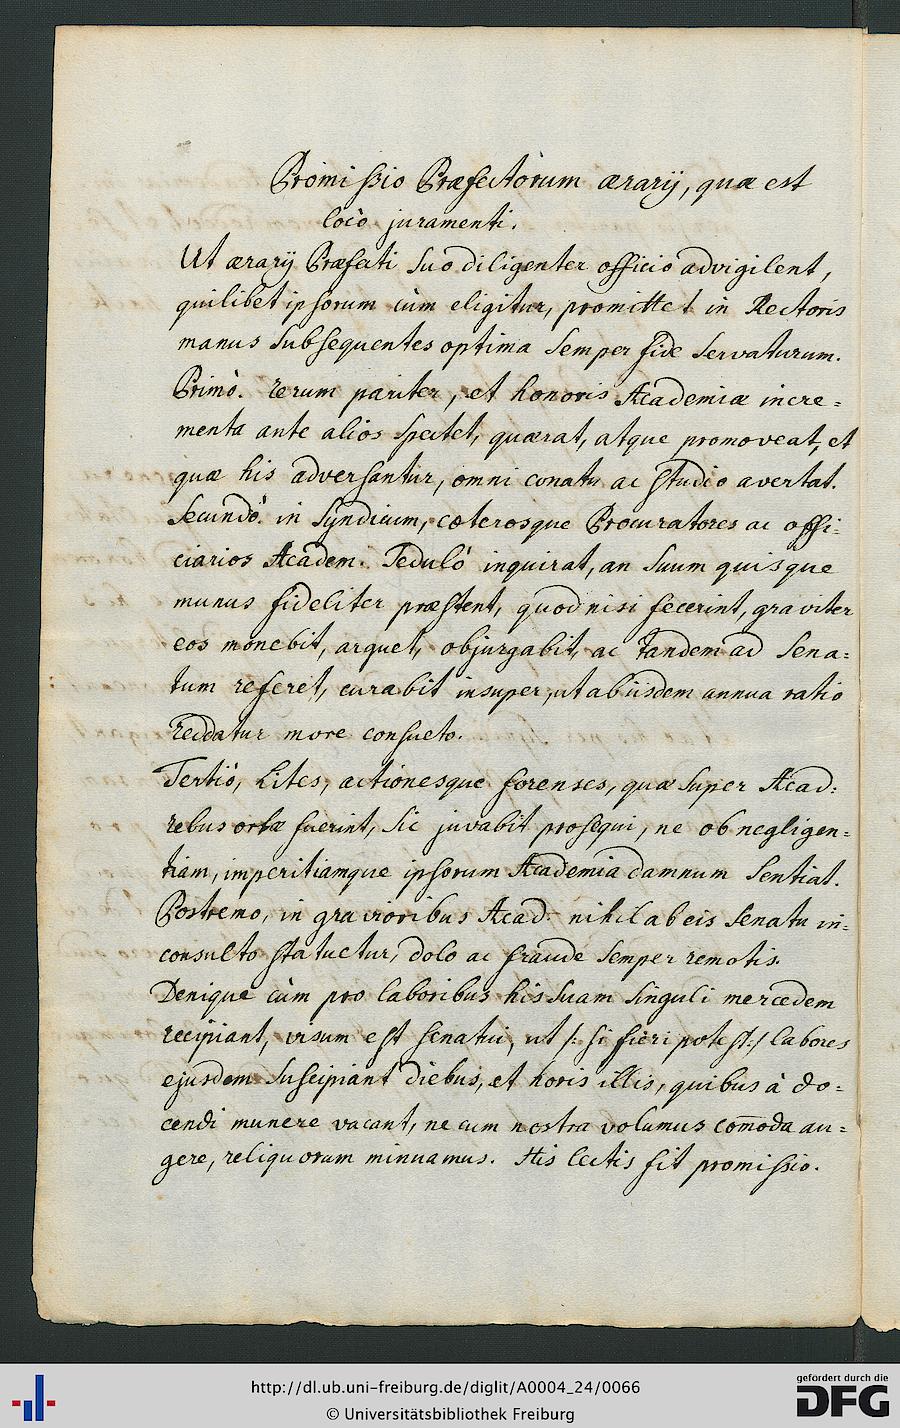 Promissio Præfectorum ærarÿ, quæ est
locò juramenti.
Ut ærarÿ Præfecti suo diligenter officio advigilent,
quilibet ipsorum cùm eligitur, promittet in Rectoris
manus subsequentes optima semper fide servaturum.
Primò. rerum pariter, et honoris Academiæ incre=
menta ante alios spectet, quærat, atque promoveat, et
quæ his adversantur, omni conatu ac studio avertat.
Secundò. in Syndicum, cæterosque Procuratores ac offi=
ciarios Academ: Sedulò inquirat, an suum quisque
munus fideliter præstent, quod nisi fecerint, graviter
eos monebit, arguet, objurgabit, ac tandem ad Sena=
tum referet, curabit insuper, ut ab iisdem annua ratio
reddatur more consueto.
Tertiò, Lites, actionesque forenses, quæ super Acad:
rebus ortæ fuerint, sic juvabit prosequi, ne ob negligen=
tiam, imperitiamque ipsorum Academia damnum sentiat.
Postremo, in gravioribus Acad: nihil ab eis Senatu in=
consulto statuetur, dolo ac fraude semper remotis.
Denique cùm pro laboribus his suam singuli mercedem
recipiant, visum est senatui, ut /: si fieri potest :/ labores
ejusdem suscipiant diebus, et horis illis, quibus à do=
cendi munere vacant, ne cum nostra volumus com̄oda au=
gere, reliquorum minuamus. His lectis fit promissio.
http://dl.ub.uni-freiburg.de/diglit/A0004_24/0066
© Universitätsbibliothek Freiburg
gefördert durch die
DFG